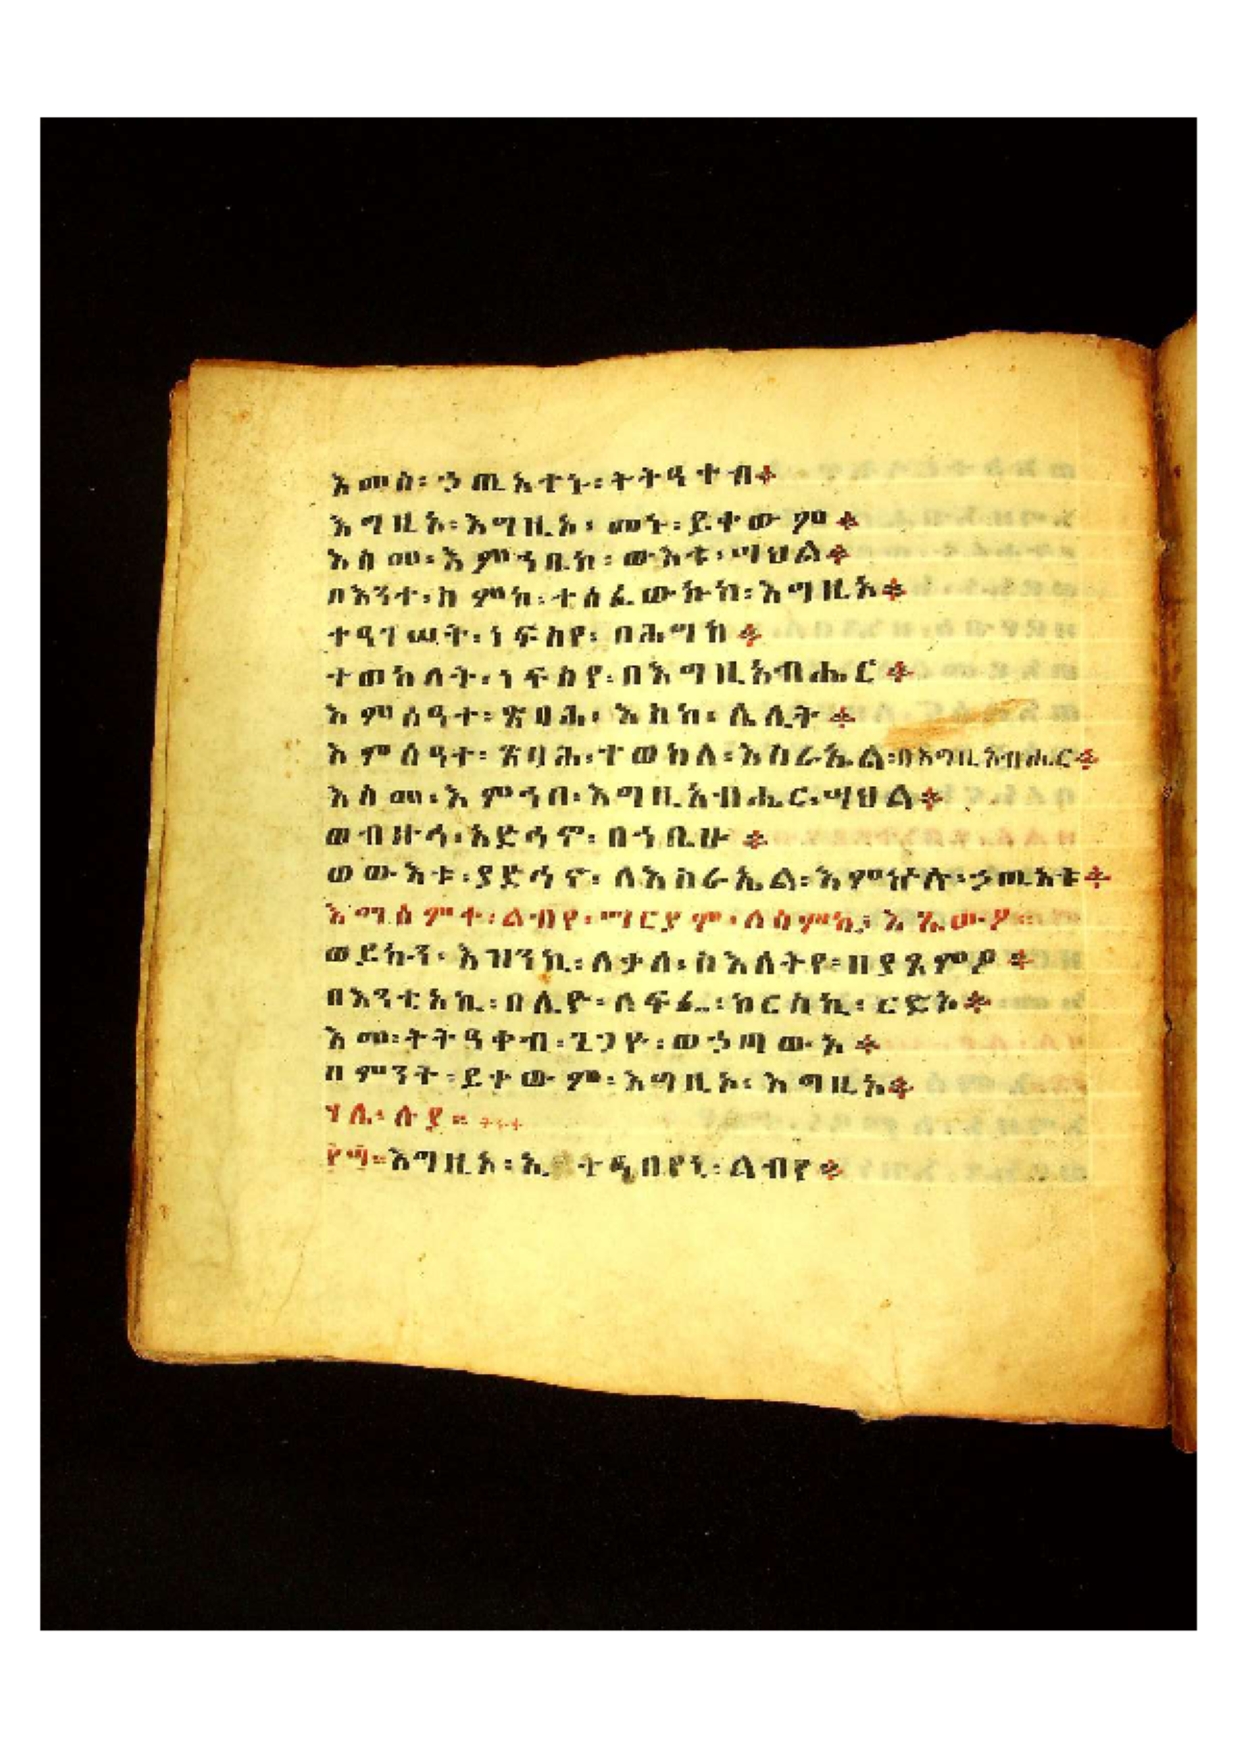 እመሰ፡ኃጢአተኑ፡ትትዓተብ፨
እግዚኦ፡እግዚኦ፡መኑ፡ይቀውም፨
እስመ፡እምኀቤከ፡ውእቱ፡ሣህል፨
በእንተ፡ስምከ፡ተሰፈውኩከ፡እግዚኦ፨
ተዓገሠት፡ነፍስየ፡በሕግከ፨
ተወከለት፡ነፍስየ፡በእግዚአብሔር፨
እምሰዓተ፡ጽባሕ፡እስከ፡ሌሊት፨
እምሰዓተ፡ጽባሕ፡ተወከለ፡እስራኤል፡በእግዚአብሔር፨
እስመ፡እምኀበ፡እግዚአብሔር፡ሣህል፨
ወብዙኅ፡አድኅኖ፡በኀቤሁ፨
ወውእቱ፡ያድኅኖ፡ለእስራኤል፡እምኵሉ፡ኃጢአቱ፨
እማሰምቀ፡ልብየ፡ማርያም፡ለስምኪ፡እኤውዖ።
ወይኩን፡እዝንኪ፡ለቃለ፡ስእለትየ፡ዘያጸምዖ፨
በእንቲአኪ፡በሊዮ፡ለፍሬ፡ከርስኪ፡ርድኦ፨
እመ፡ትትዓቀብ፡ጌጋዮ፡ወኃጣውአ፨
በምንት፡ይቀውም፡እግዚኦ፡እግዚኦ፨
ሃሌ፡ሉያ።
፻፴።እግዚኦ፡ኢተዓበየኒ፡ልብየ፨